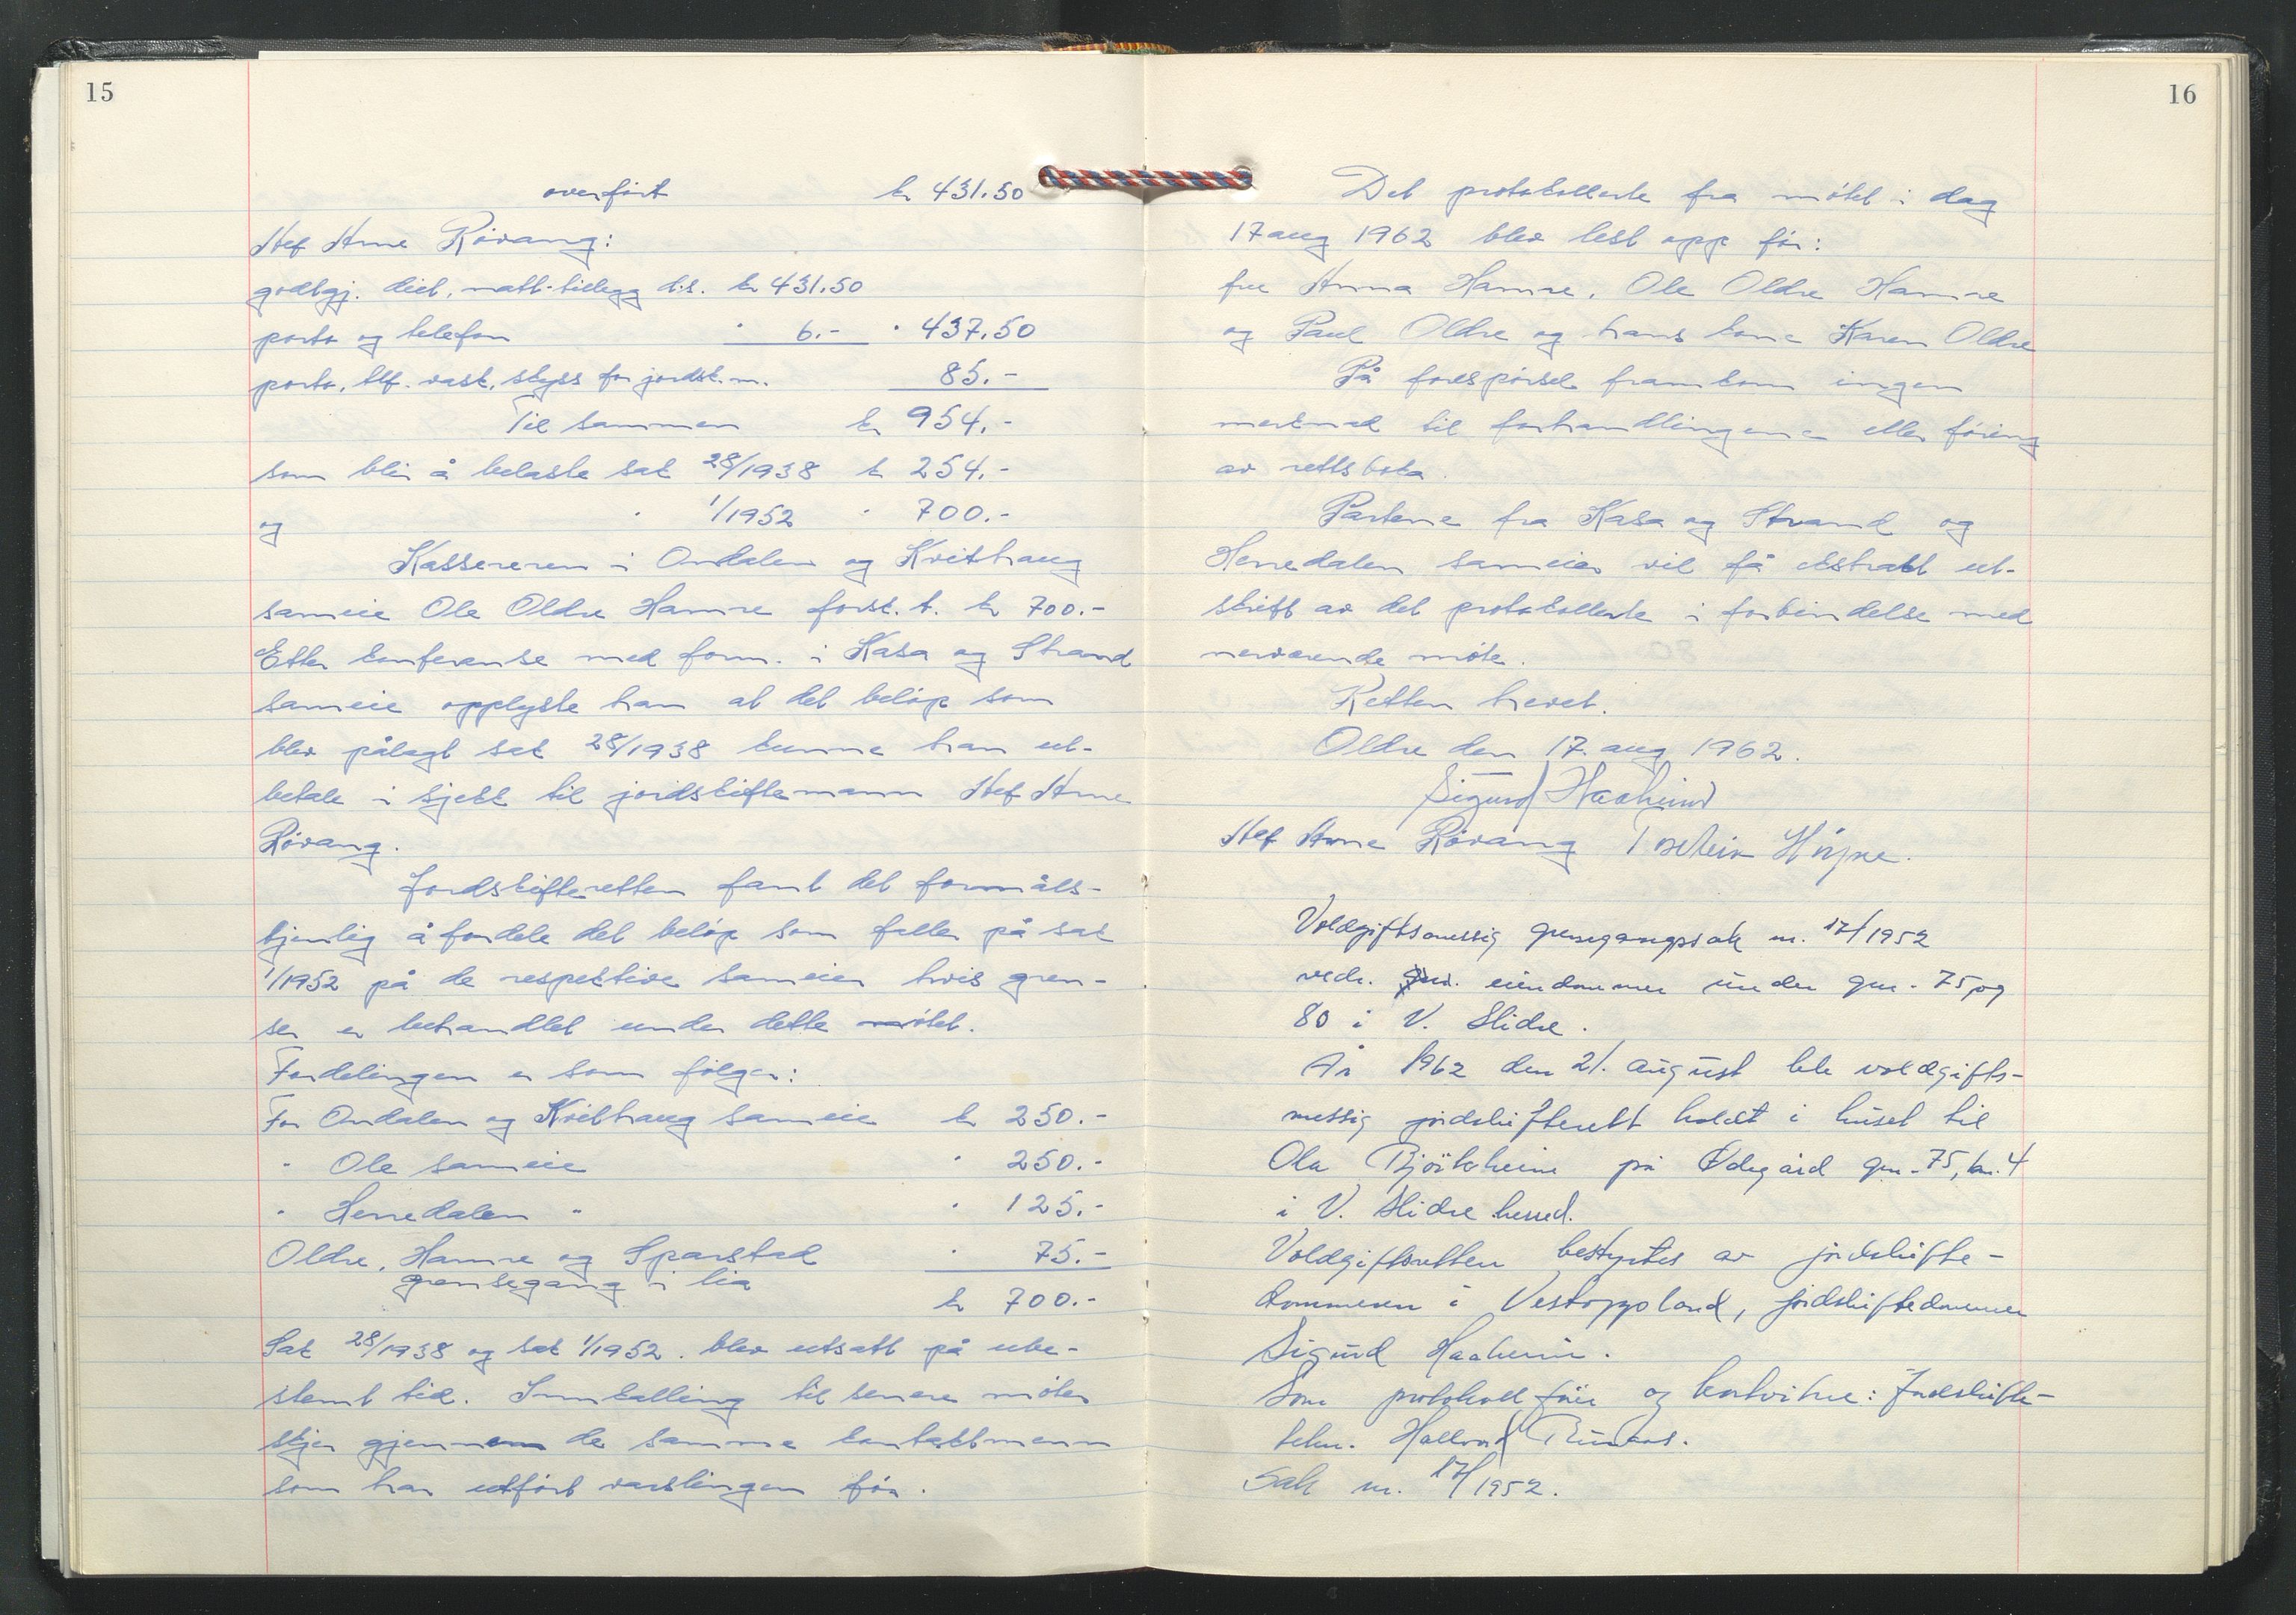 15
overført kr 431.50
Stef Arne Røvang:
godtgj. diet. natt-tillegg d.s. kr 431.50
porto og telefon " 6.- " 437.50
porto, tlf. vask, skyss for jordsk.m. 85.-
Til sammen kr 954.-
som blir å belaste sak 28/1938 kr 254.-
og " 1/1952 " 700.-
Kassereren i Ondalen og Kvithaug
sameie Ole Oldre Hamre forsk. b. kr 700.-
Etter konferanse med form. i Kasa og Strand
sameie opplyste han at det beløp som
blev pålagt sak 28/1938 kunne han ut-
betale i sjekk til jordskiftemann Stef Arne
Røvang.
Jordskifteretten fant det formåls-
tjenlig å fordele det beløp som faller på sak
1/1952 på de respektive sameier hvis gren-
ser er behandlet under dette møtet.
Fordelingen er som følger:
For Ondalen og Kvithaug sameie kr 250.-
" Ole sameie " 250.-
" Herredalen " " 125.-
Oldre, Hamre og Sparstad " 75.-
grensegang i lia
kr 700.-
Sak 28/1938 og sak 1/1952. blev utsatt på ube-
stemt tid. Innkalling til senere møter
skjer gjennom de samme kontaktmenn
som har utført varslingen før.
16
Det protokollerte fra møtet i dag
17 aug 1962 blev lest opp før:
fru Anna Hamre, Ole Oldre Hamre
og Paul Oldre og hans kone Karen Oldre
På forespørsel framkom ingen
merknad til forhandlingene eller føring
av rettsboka.
Partene fra Kasa og Strand og
Herredalen sameier vil få ekstrakt ut-
skrift av det protokollerte i forbindelse med
nerværende møte.
Retten hevet.
Oldre den 17. aug 1962.
Sigurd Haaheim
Stef Arne Røvang Høyne.
Voldgiftsmessig grensegangssak nr. 17/1952
vedr. eiendommer under gnr. 75 og
80 i V. Slidre.
År 1962 den 21. august ble voldgifts-
messig jordskifterett holdt i huset til
Ola Bjørkheim på Ødegård gnr. 75, bnr. 4
i V. Slidre herred.
Voldgiftsretten bestyrtes av jordskifte-
dommeren i Vestoppland, jordskiftedommer
Sigurd Haaheim.
Som protokollfører og kartvitne: Jordskifte-
tekn. Hallvard
Sak nr. 17/1952.